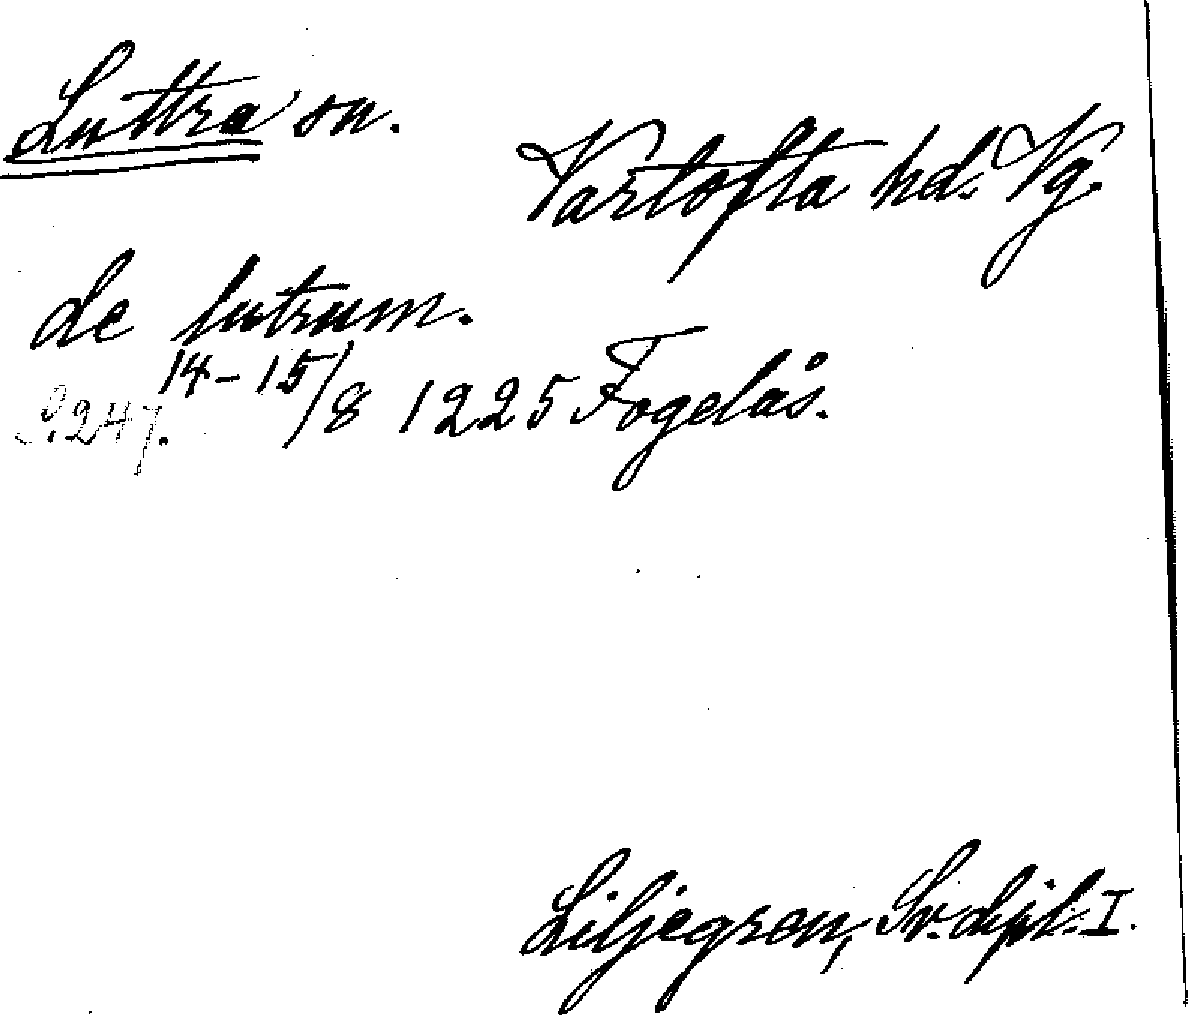 Luttra sn.
Vartofta hd. Vg.
de lutrum.
14-15/8 1225 Fogelås.
S. 247.
Liljegren, Sv. dipl. I.